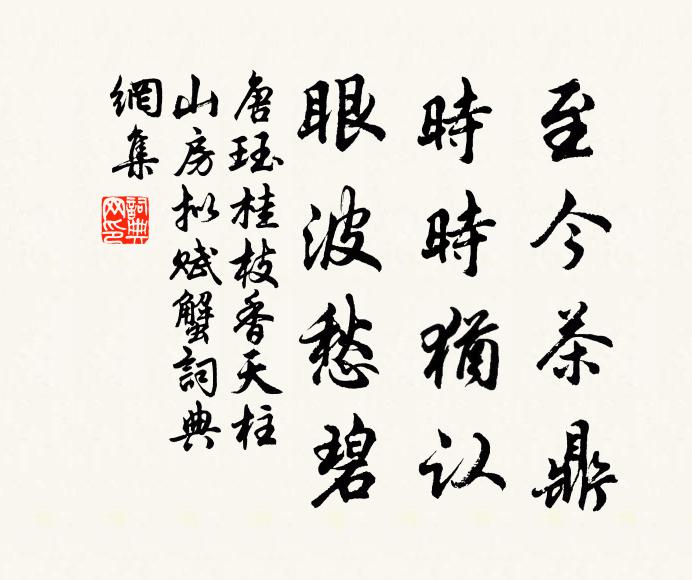 至今茶鼎
時時猶认
眼波愁碧
唐珏桂枝香天柱
山房拟赋蟹詞典
網集
詞典
网印